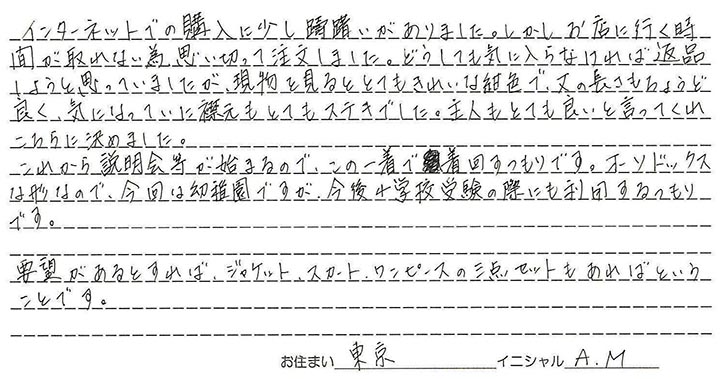 インターネットでの購入に少し躊躇いがありました。しかしお店に行く時
間が取れない為思い切って注文しました。どうしても気に入らなければ返品
しようと思っていましたが、現物を見るととてもきれいな紺色で、丈の長さもちょうど
良く、気になっていた襟元もとてもステキでした。主人もとても良いと言ってくれ
こちらに決めました。
これから説明会等が始まるので、この一着で着回すつもりです。オーソドックス
な形なので、今回は幼稚園ですが、今後小学校受験の際にも利回するつもり
です。
要望があるとすれば、ジャケット、スカート、ワンピースの三点セットもあればという
ことです。
お住まい 東京 イニシャル A.M